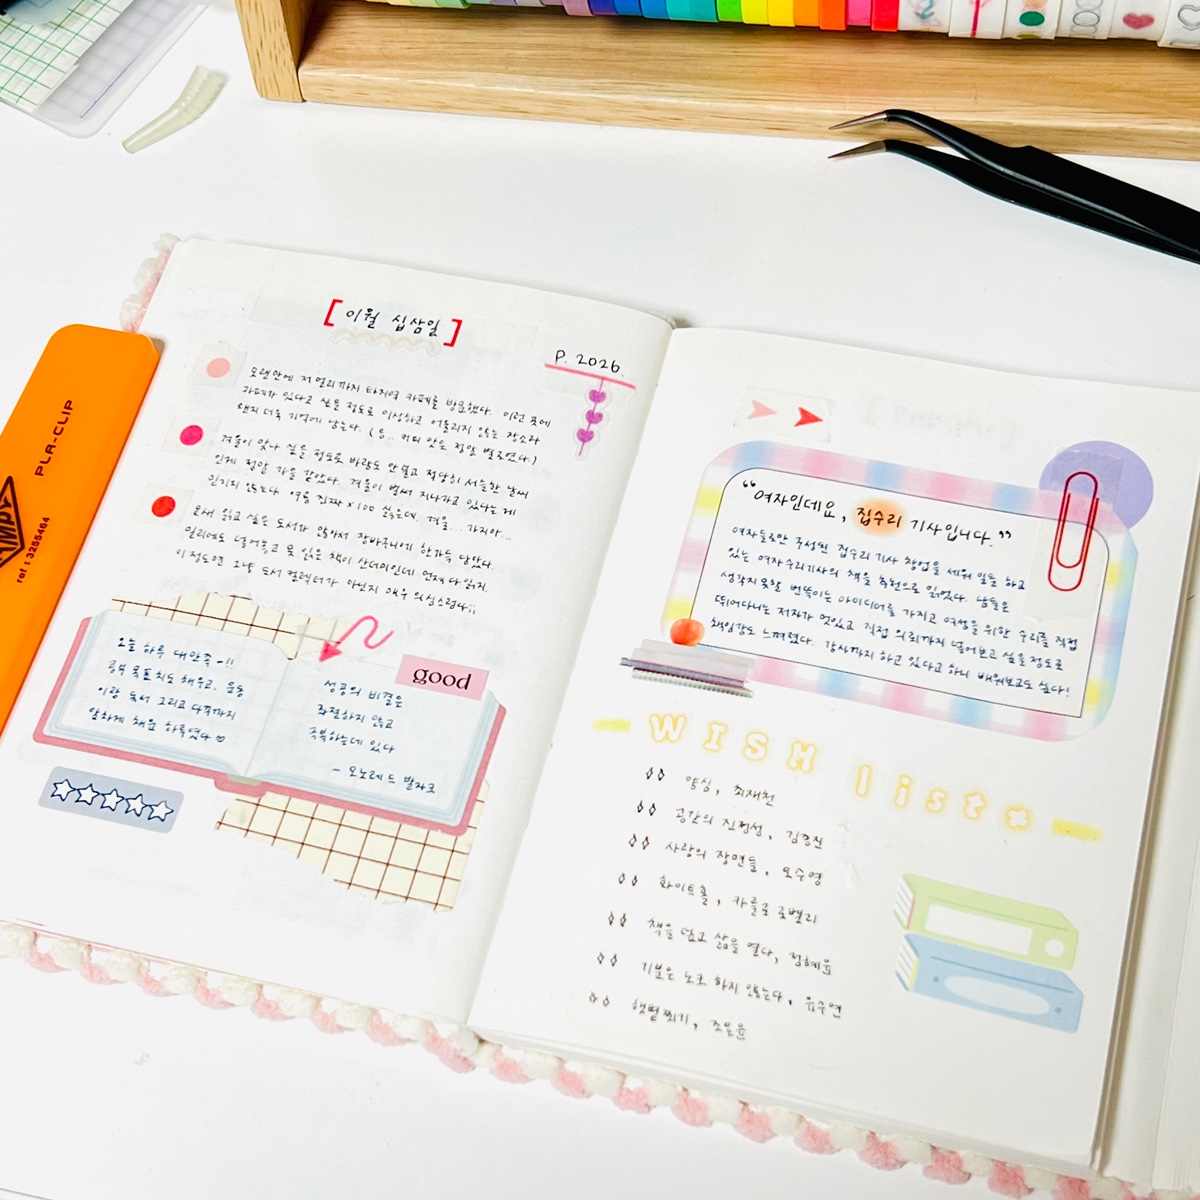 [ 이월 십삼일 ]
P. 2026.
오랜만에 저 멀리까지 타지역 카페를 방문했다. 이런 곳에
카페가 있다고 싶은 정도로 이상하고 어울리지 않는 장소라
왠지 더욱 기억에 남는다. (음.. 커피 맛은 정말 별로였다.)
겨울이 맞나 싶은 정도로 바람도 안 불고 적당히 서늘한 날씨
인게 정말 가을 같았다. 겨울이 벌써 지나가고 있나는 게
믿기지 않는다. 여름 진짜 x100 싫은데. 겨울... 가지마...
요새 읽고 싶은 도서가 많아서 장바구니에 한가득 담았다.
밀리에도 넣어놓고 못 읽은 책이 산더미인데 언제 다 읽지.
이 정도면 그냥 도서 컬렉터가 아닌지 매우 의심스럽다;;
오늘 하루 대만족-!!
공백 목표치도 채우고, 운동
이랑 독서 그리고 다꾸까지
알차게 채운 하루였다 ♡
good
성공의 비결은
좌절하지 않고
극복하는데 있다
- 오노레 드 발자크
PLA-CLIP
ref : 3255464
“여자인데요, 집수리 기사입니다.”
여자들로만 구성된 집수리 기사 창업을 세워 일을 하고
있는 여자 수리기사의 책을 추천으로 읽었다. 남들은
생각지 못할 번뜩이는 아이디어를 가지고 여성을 위한 수리를 직접
뛰어다니는 저자가 멋있고 직접 의뢰까지 넣어보고 싶을 정도로
책임감도 느껴졌다. 강사까지 하고 있다고 하니 배워보고도 싶다!
WISH list
양심, 최재천
공간의 진정성, 김종진
사랑의 장면들, 오수영
화이트홀, 카를로 로벨리
책을 덮고 삶을 열다, 정혜윤
기분은 노크 하지 않는다, 유수연
햇볕 쬐기, 조온윤